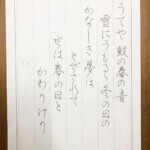 うてや鼓の春の音
雪にうもるゝ冬の日の
かなしき夢は
とざされて
世は春の日と
かわりけり